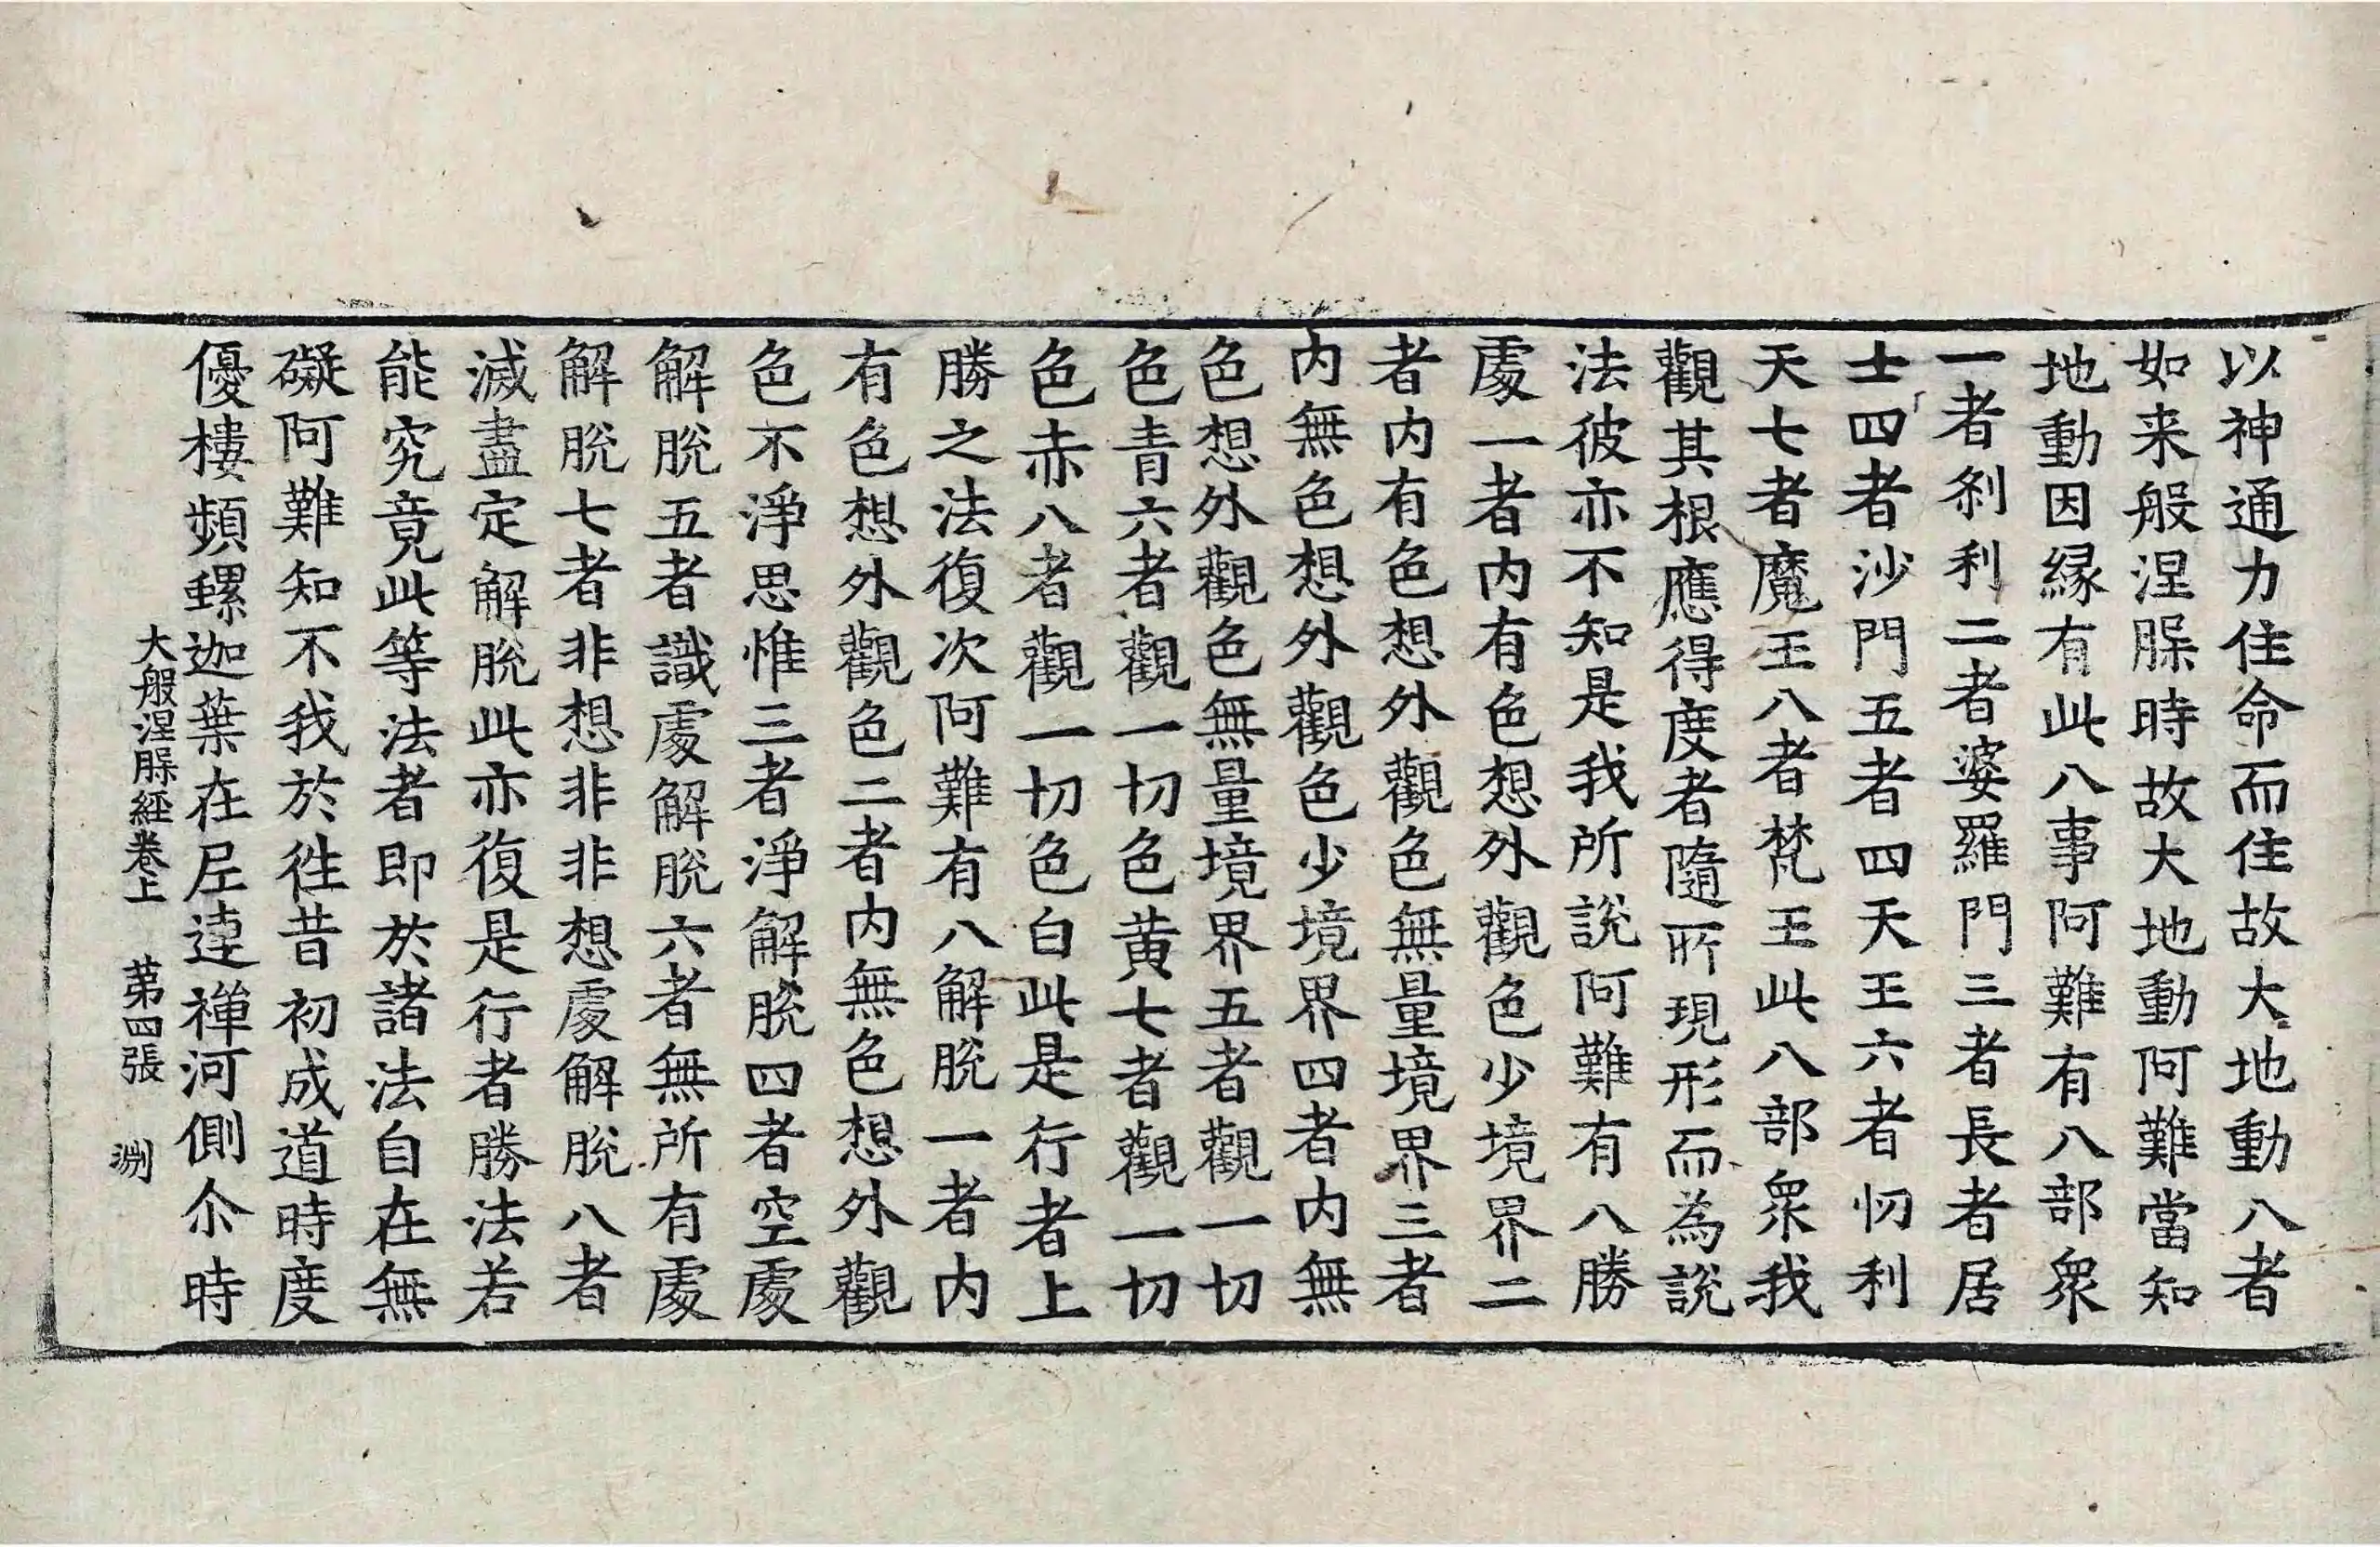 以神通力住命而住故大地動八者
如来般涅槃時故大地動阿難當知
地動因縁有此八事阿難有八部衆
一者刹利二者婆羅門三者長者居
士四者沙門五者四天王六者忉利
天七者魔王八者梵王此八部衆我
觀其根應得度者隨所現形而為說
法彼亦不知是我所說阿難有八勝
處一者内有色想外觀色少境界二
者内有色想外觀色無量境界三者
内無色想外觀色少境界四者内無
色想外觀色無量境界五者觀一切
色青六者觀一切色黄七者觀一切
色赤八者觀一切色白此是行者上
勝之法復次阿難有八解脫一者内
有色想外觀色二者内無色想外觀
色不淨思惟三者淨解脫四者空處
解脫五者識處解脫六者無所有處
解脫七者非想非非想處解脫八者
滅盡定解脫此亦復是行者勝法若
能究竟此等法者即於諸法自在無
礙阿難知不我於徃昔初成道時度
優樓頻螺迦葉在尼連禅河側尒時
大般涅槃經卷上 苐四張 渊